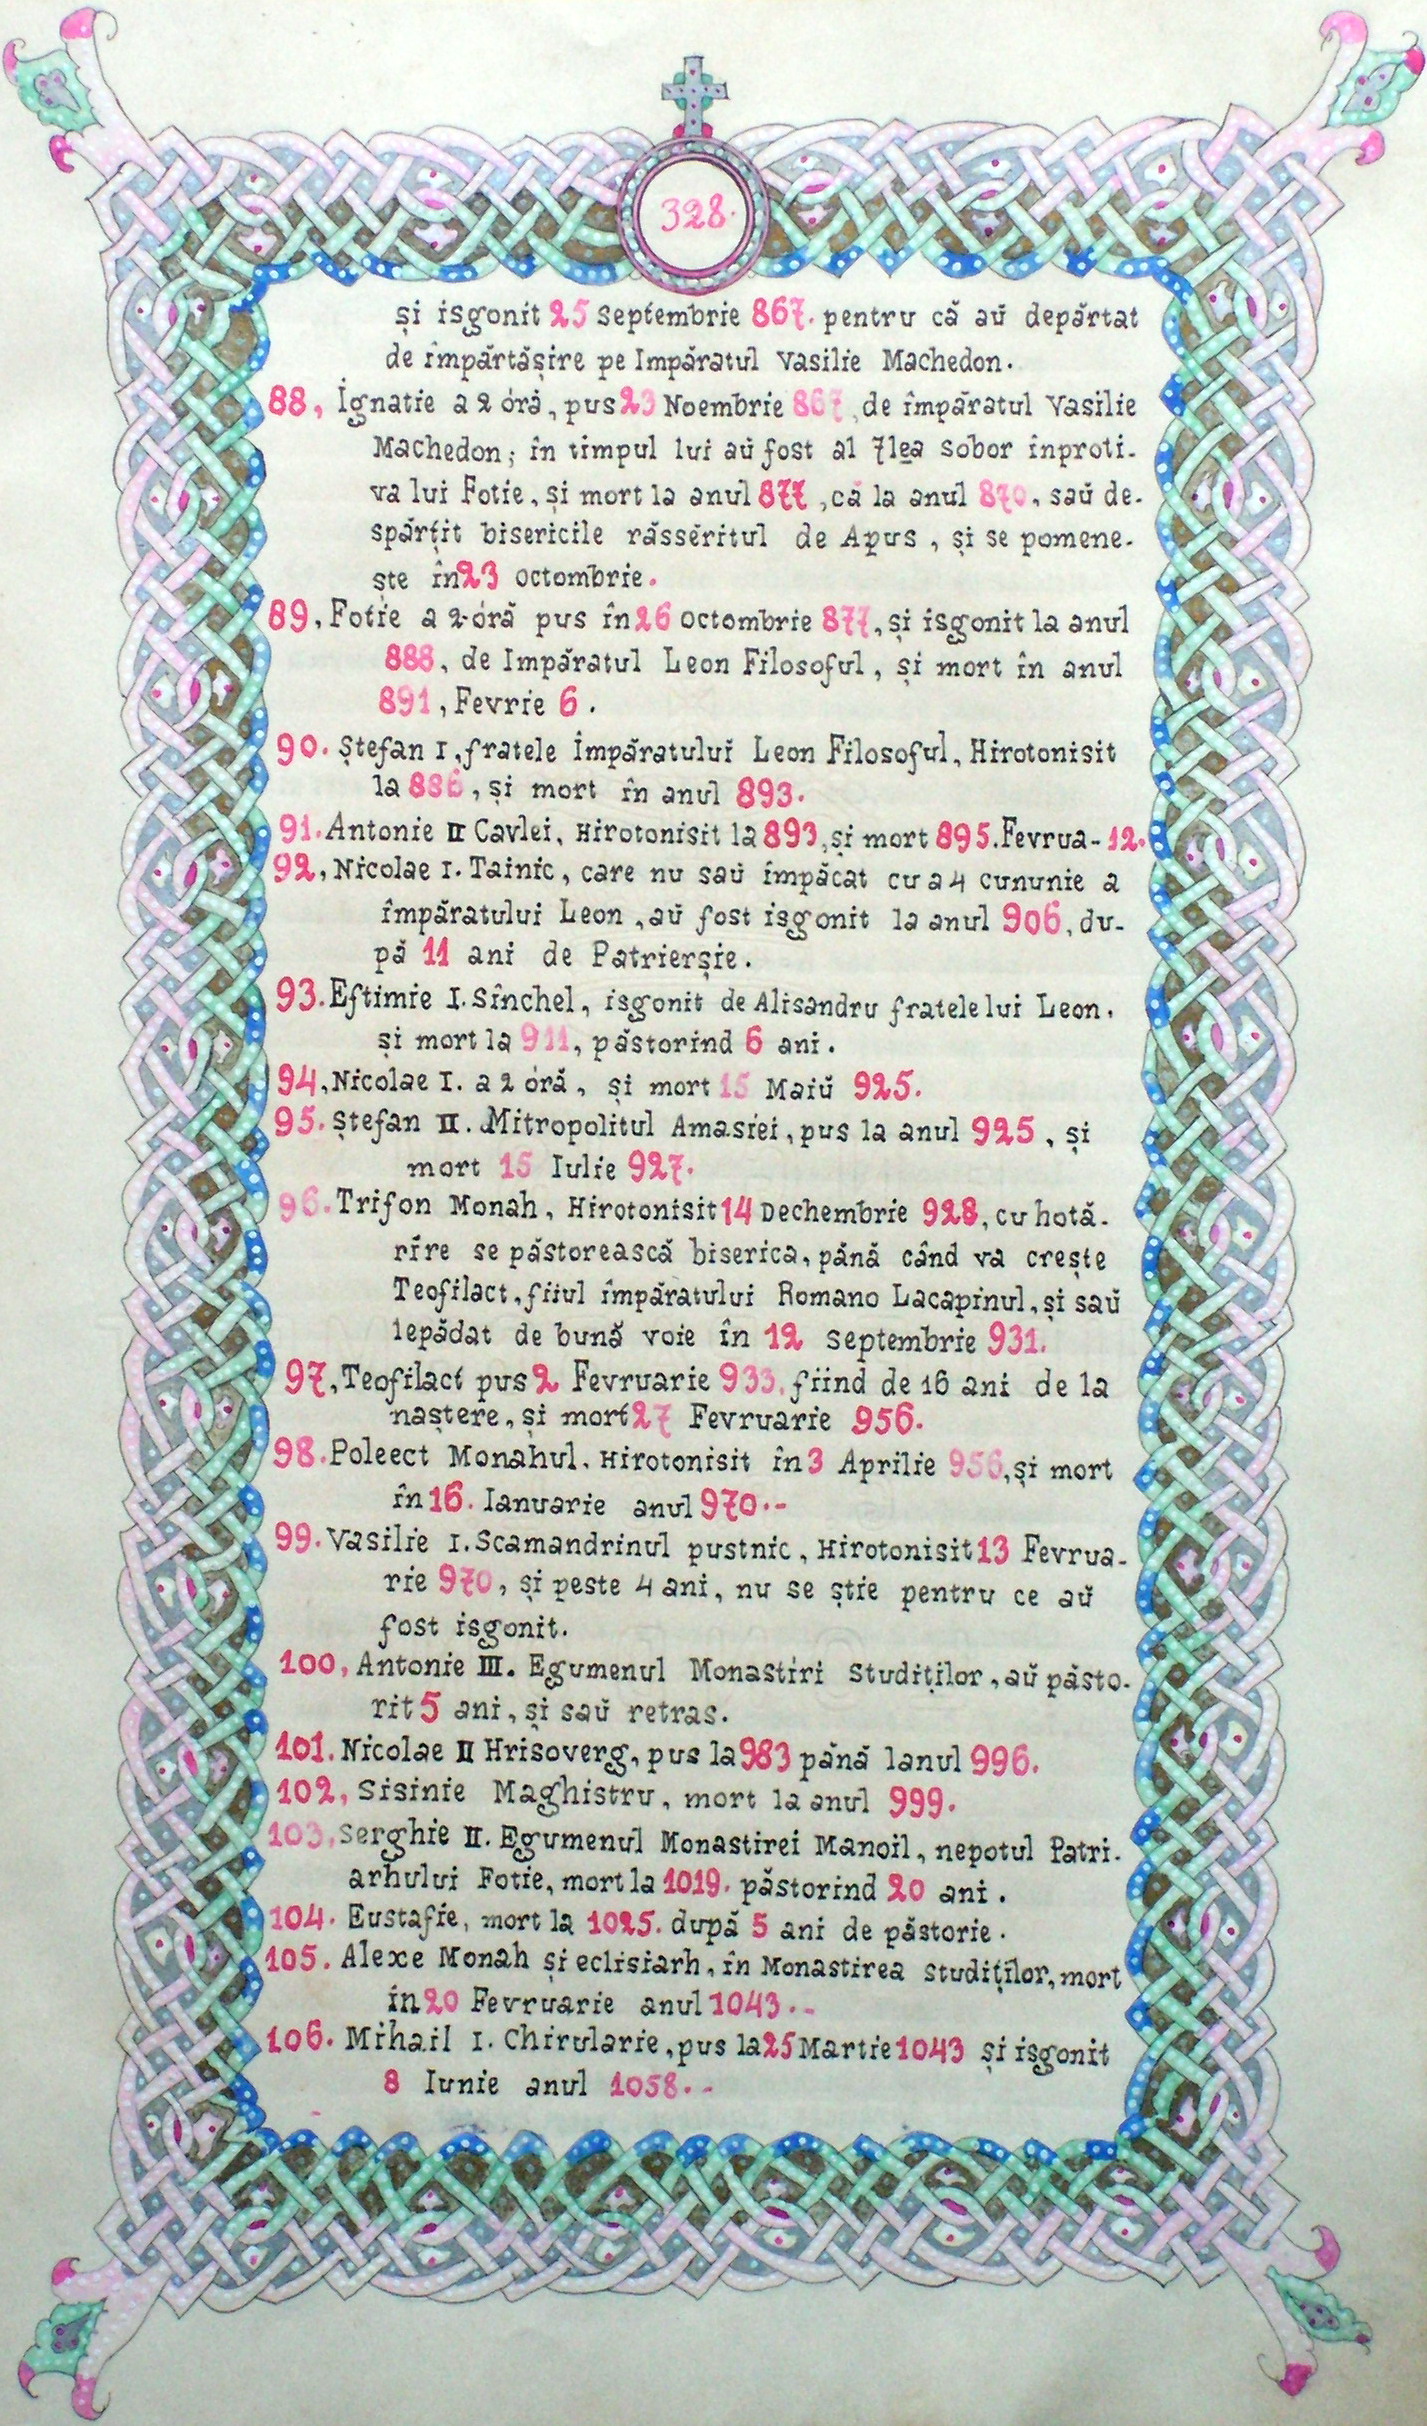 328.
și isgonit 25 Septembrie 867. pentru că aŭ depărtat
de împărtășire pe Impăratul Vasilie Machedon.
88, Ignatie a 2 óră, pus 23 Noembrie 867, de împăratul Vasilie
Machedon; în timpul lui aŭ fost al 7lea Sobor înproti-
va lui Fotie, și mort la anul 877, că la anul 870, saŭ de-
spărțit bisericile răsséritul de Apus, și se pomene-
ște în 23 octombrie.
89, Fotie a 2-óră pus în 26 octombrie 877, și isgonit la anul
888, de Impăratul Leon Filosoful, și mort în anul
891, Fevrie 6.
90. Ștefan I, fratele Impăratuluĭ Leon Filosoful, Hirotonisit
la 886, și mort în anul 893.
91. Antonie II Cavlei, Hirotonisit la 893, și mort 895. Fevrua- 12.
92, Nicolae I. Tainic, care nu saŭ împăcat cu a 4 cununie a
împăratului Leon, aŭ fost isgonit la anul 906, du-
pă 11 ani de Patrierșie.
93. Eftimie I. Sînchel, isgonit de Alisandru fratele lui Leon,
și mort la 911, păstorind 6 ani.
94, Nicolae I. a 2 óră, și mort 15 Maiŭ 925.
95. Ștefan II. Mitropolitul Amasiei, pus la anul 925, și
mort 15 Iulie 927.
96. Trifon Monah, Hirotonisit 14 Dechembrie 928, cu hotă-
rîre se păstorească biserica, pănă când va crește
Teofilact, fiiul împăratului Romano Lacapinul, și saŭ
lepădat de bună voie în 12 Septembrie 931.
97, Teofilact pus 2 Fevruarie 933, fiind de 16 ani de la
naștere, și mort 27 Fevruarie 956.
98. Poleect Monahul, Hirotonisit în 3 Aprilie 956, și mort
în 16. Ianuarie anul 970.-
99. Vasilie I. Scamandrinul pustnic, Hirotonisit 13 Fevrua-
rie 970, și peste 4 ani, nu se știe pentru ce aŭ
fost isgonit.
100, Antonie III. Egumenul Monastiri Studiților, aŭ păsto-
rit 5 ani, și saŭ retras.
101. Nicolae II Hrisoverg, pus la 983 pănă lanul 996.
102, Sisinie Maghistru, mort la anul 999.
103, Serghie II. Egumenul Monastirei Manoil, nepotul Patri-
arhului Fotie, mort la 1019. păstorind 20 ani.
104. Eustafie, mort la 1025. după 5 ani de păstorie.
105. Alexe Monah și eclisiarh, în Monastirea Studiților, mort
în 20 Fevruarie anul 1043.-
106. Mihail I. Chirularie, pus la 25 Martie 1043 și isgonit
8 Iunie anul 1058.-